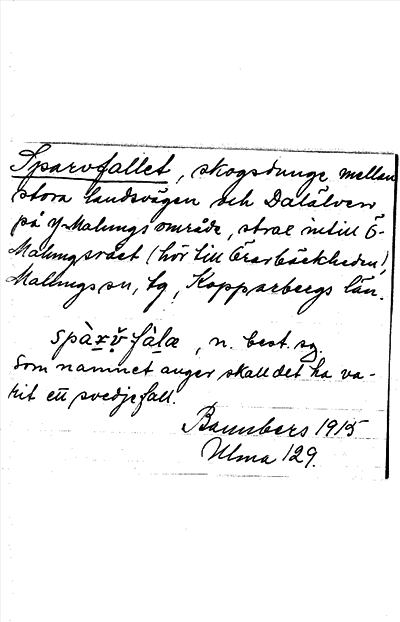 Sparvfallet, skogsdunge mellan
stora landsvägen och Dalälven
på Y-Malungs område, strax intill Ö-
Malungsrået (hör till Örarbäckheden),
Malungs sn, tg, Kopparbergs län.
n. best. sg.
Som namnet anger skall det ha va-
rit ett svedjefall.
Bannbers 1915
Ulma 129.